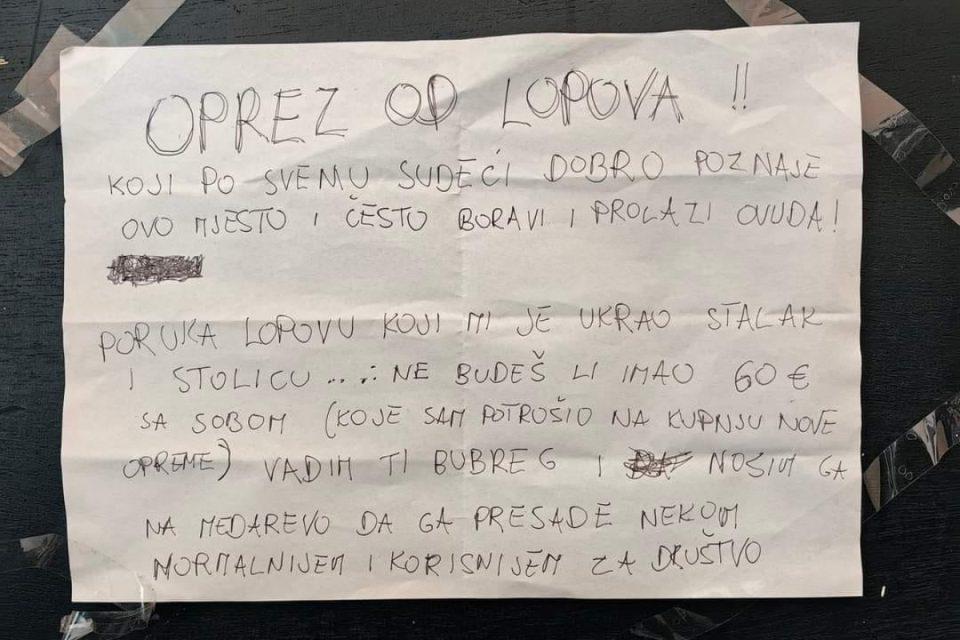 OPREZ OD LOPOVA !!
KOJI PO SVEMU SUDEĆI DOBRO POZNAJE
OVO MJESTO I ČESTO BORAVI I PROLAZI OVUDA!
PORUKA LOPOVU KOJI MI JE UKRAO STALAK
I STOLICU ..... NE BUDEŠ LI IMAO 60 €
SA SOBOM (KOJE SAM POTROŠIO NA KUPNJU NOVE
OPREME) VADIM TI BUBREG I NOSIM GA
NA MEDAREVO DA GA PRESADE NEKOM
NORMALNIJEM I KORISNIJEM ZA DRUŠTVO